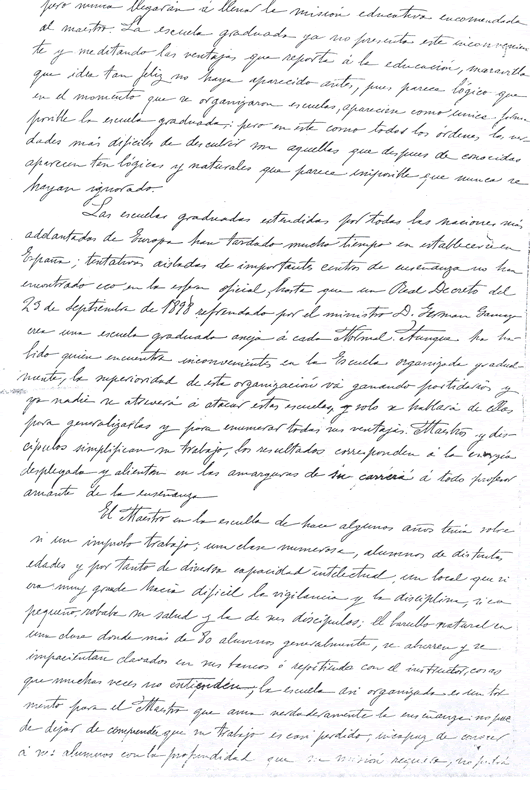 pero nunca llegarán á llenar la misión educativa encomendada
al maestro. La escuela graduada ya no presenta este inconvenien
te y meditando las ventajas que reporta á la educación, maravilla
que idea tan feliz no haya aparecido antes, pues parece lógico que
en el momento que se organizaron escuelas, apareciera como única forma
posible la escuela graduada; pero en este como todos los órdenes, las ver
dades más difíciles de descubrir son aquellas que despues de conocidas
aparecen tan lógicas y naturales que parece imposible que nunca se
hayan ignorado.
Las escuelas graduadas extendidas por todas las naciones más
adelantadas de Europa han tardado mucho tiempo en establecerse en
España; tentativas aisladas de importantes centros de enseñanza no han
encontrado eco en la esfera oficial, hasta que un Real Decreto del
23 de Septiembre de 1898 refrendado por el ministro D. German Gamazo
crea una escuela graduada aneja á cada Normal. Aunque ha ha
bido quien encuentra inconvenientes en la Escuela organizada gradual
mente, la superioridad de esta organización vá ganando partidarios y
ya nadie se atreverá á atacar estas escuelas, y solo se hablará de ellas
para generalizarlas y para enumerar todas sus ventajas. Maestro y dis
cípulos simplifican su trabajo, los resultados corresponden á la energia
desplegada y alientan en las amarguras de su carrera á todo profesor
amante de la enseñanza
El Maestro en la escuela de hace algunos años tenia sobre
si un improbo trabajo; una clase numerosa, alumnos de distintas
edades y por tanto de diversa capacidad intelectual, un local que si
era muy grande hacia dificil la vigilancia y la disciplina, si era
pequeño, robaba su salud y la de sus discípulos; el barullo natural en
una clase donde más de 80 alumnos generalmente, se aburren y se
impacientan clavados en sus bancos ó repitiendo con el instructor, cosas
que muchas veces no entienden; la escuela asi organizada es un tor
mento para el Maestro que ama verdaderamente la enseñanza no pue
de dejar de comprender que su trabajo es casi perdido, incapaz de conocer
á sus alumnos con la profundidad que su misión requiere, no podrá